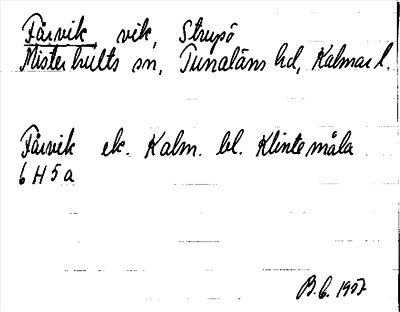 Fårvik, vik, Strupö
Misterhults sn, Tunaläns hd, Kalmar l.
Fårvik ek. Kalm. bl. Klintemåla
6 H 5 a
B.G. 1957